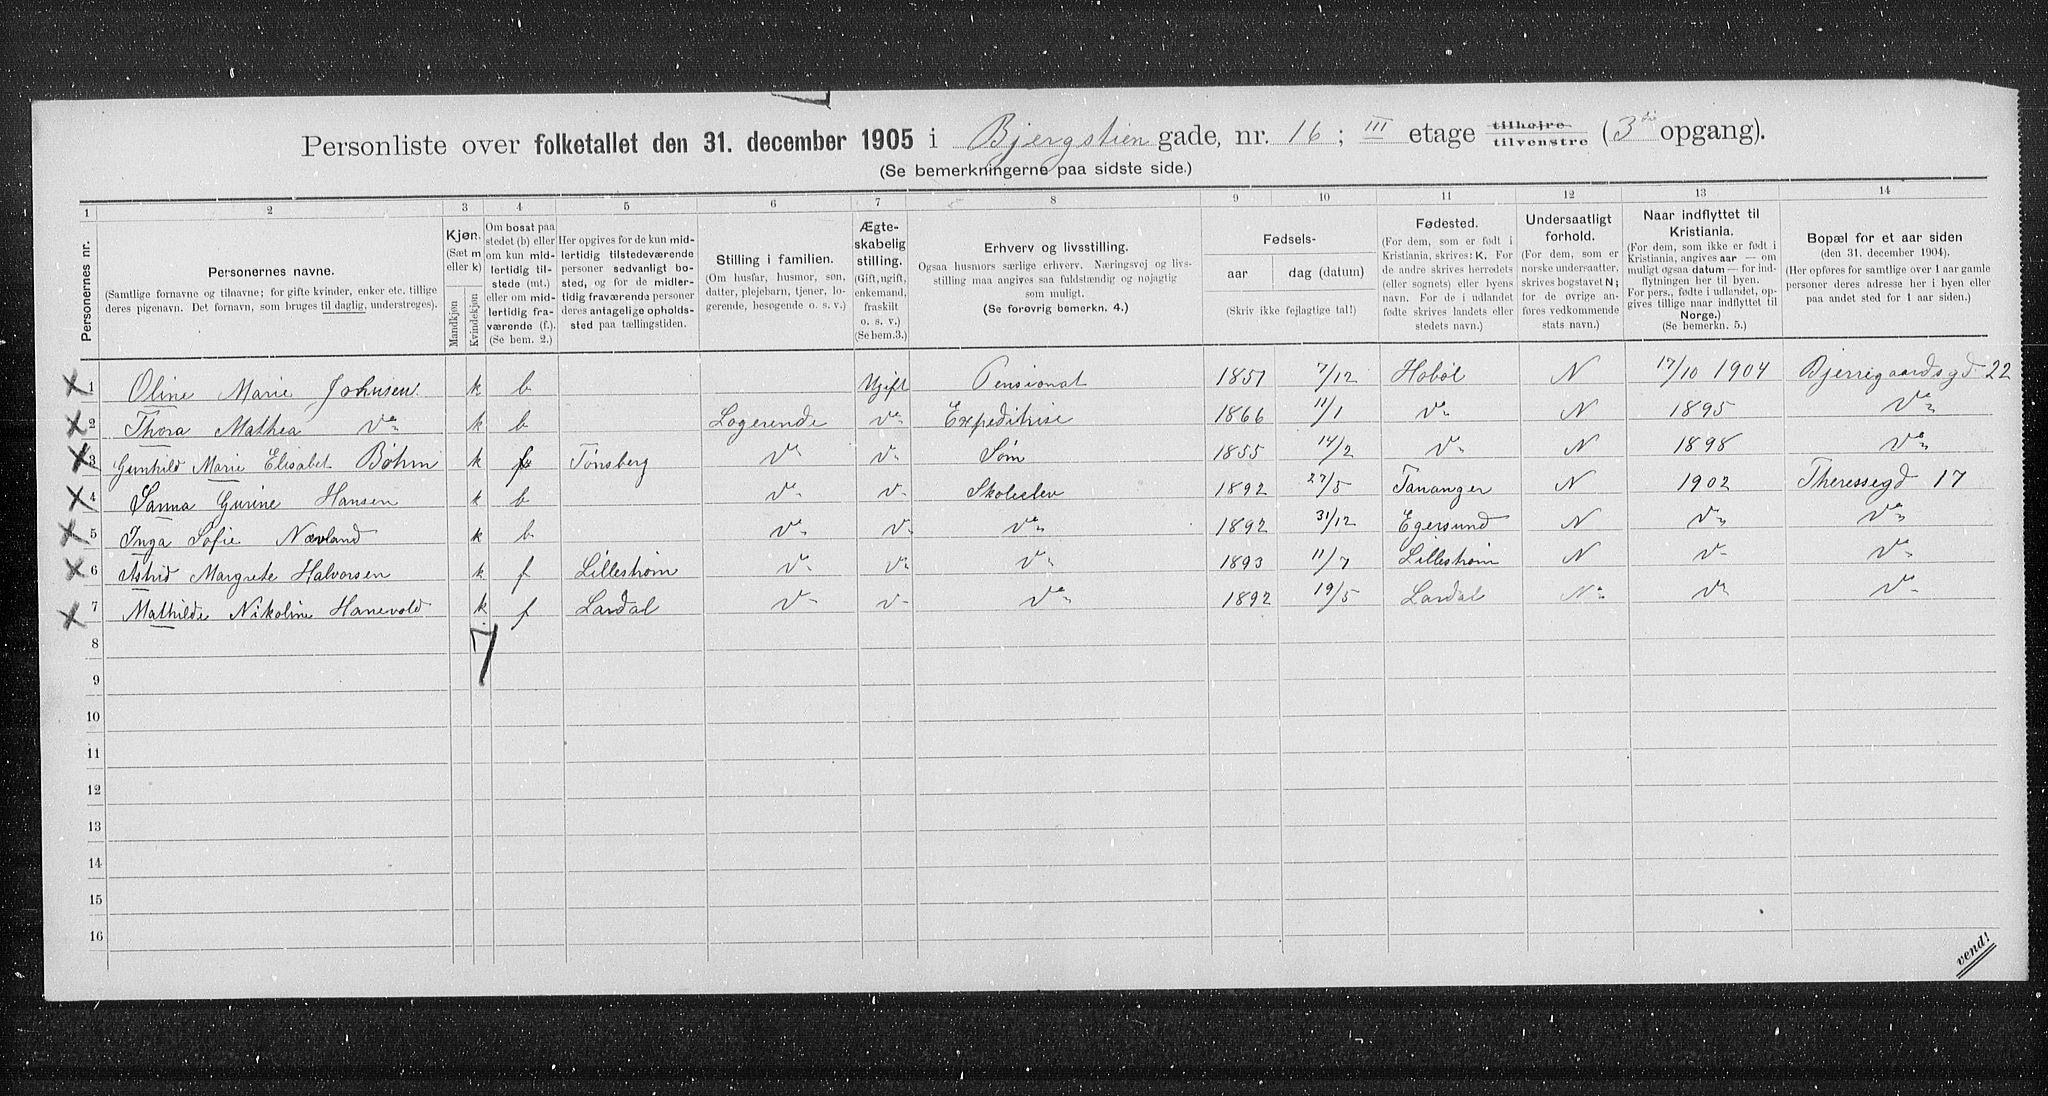 Personliste over folketallet den 31. december 1905 i Bjergstien gade, nr. 16; III etage tilhøjre tilvenstre (3die opgang).
(Se bemerkningerne paa sidste side.)
1 2 3 4 5 6 7 8 9 10 11 12 13 14
Personernes nr.
Personernes navne.
(Samtlige fornavne og tilnavne; for gifte kvinder, enker etc. tillige
deres pigenavn. Det fornavn, som bruges til daglig, understreges).
Kjøn.
(Sæt m
eller k)
Mandkjøn
Kvindekjøn
Om bosat paa
stedet (b) eller
om kun mid-
lertidig til-
stede (mt.)
eller om mid-
lertidig fra-
værende (f.).
(Se bem. 2.)
Her opgives for de kun mid-
lertidig tilstedeværende
personer sedvanligt bo-
sted, og for de midler-
tidig fraværende personer
deres antagelige opholds-
sted paa tællingstiden.
Stilling i familien.
(Om husfar, husmor, søn,
datter, plejebarn, tjener, lo-
gerende, besøgende o. s. v.)
Ægte-
skabelig
stilling.
(Gift, ugift,
enkemand,
fraskilt
o. s. v.)
(Se bem. 3.)
Erhverv og livsstilling.
Ogsaa husmors særlige erhverv. Næringsvej og livs-
stilling maa angives saa fuldstændig og nøjagtig
som muligt.
(Se forøvrig bemerkn. 4.)
Fødsels-
aar dag (datum)
(Skriv ikke fejlagtige tal!)
Fødested.
(For dem, som er født i
Kristiania, skrives: K. For
de andre skrives herredets
(eller sognets) eller byens
navn. For de i udlandet
fødte skrives landets eller
stedets navn.)
Undersaatligt
forhold.
(For dem, som er
norske undersaatter,
skrives bogstavet N;
for de øvrige an-
føres vedkommende
stats navn.)
Naar indflyttet til
Kristiania.
(For dem, som ikke er født i
Kristiania, angives aar — om
muligt ogsaa datum — for ind-
flytningen her til byen.
For pers., fødte i udlandet, op-
gives tillige naar indflyttet til
Norge.)
(Se bemerkn. 5.)
Bopæl for et aar siden
(den 31. december 1904).
(Her opføres for samtlige over 1 aar gamle
personer deres adresse her i byen eller
paa andet sted for 1 aar siden.)
1 Oline Marie Johnsen k b Ugift Pensionat 1851 7/12 Hobøl N 17/10 1904 Bjerregaardsgd 22
2 Thora Mathea Do k b Logerende Do Expeditrise 1866 11/1 Do N 1895 Do
3 Gunhild Marie Elisabet Bøhm k f Tønsberg Do Do Søm 1855 14/2 Do N 1898 Do
4 Sanna Gurine Hansen k b Do Do Skoleelev 1892 27/5 Tananger N 1902 Theressegd 17
5 Inga Sofie Nævland k b Do Do Do 1892 31/12 Egersund N Do Do
6 Astrid Margrete Halvorsen k f Lillestrøm Do Do Do 1893 11/7 Lillestrøm N Do Do
7 Mathilde Nikoline Hanevold k f Lardal Do Do Do 1892 19/5 Lardal No Do Do
7
8
9
10
11
12
13
14
15
16
vend!